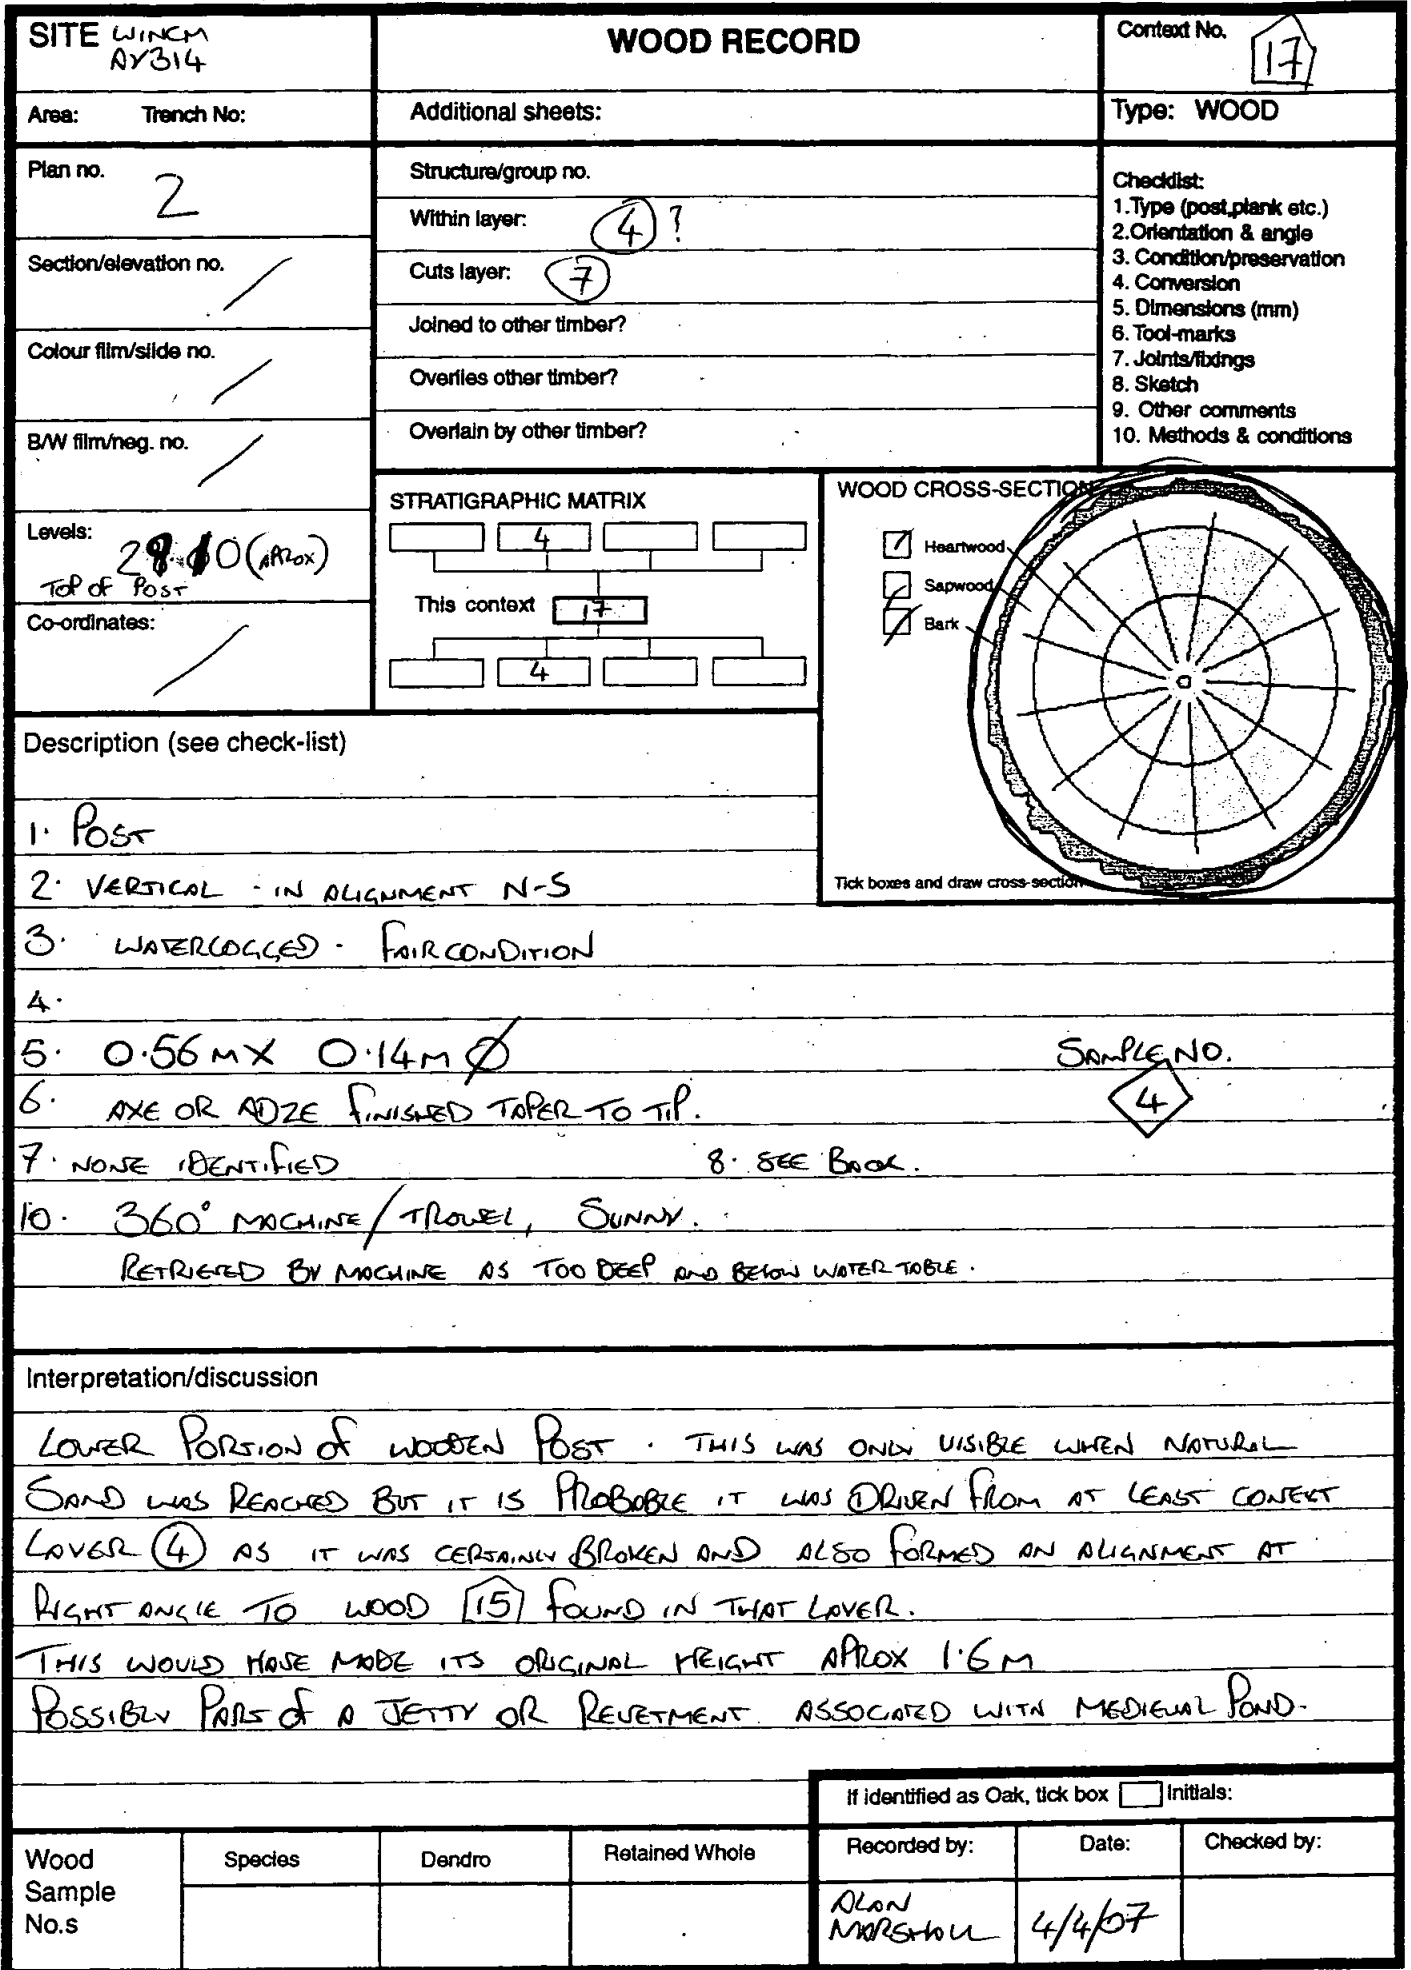 SITE WINCM
AY314
WOOD RECORD
Context No.
17
Area: Trench No:
Additional sheets:
Type: WOOD
Plan no.
2
Structure/group no.
Within layer: 4 ?
Cuts layer: 7
Joined to other timber?
Overlies other timber?
Overlain by other timber?
Checklist:
1.Type (post,plank etc.)
2.Orientation & angle
3. Condition/preservation
4. Conversion
5. Dimensions (mm)
6. Tool-marks
7. Joints/fixings
8. Sketch
9. Other comments
10. Methods & conditions
Section/elevation no. /
Colour film/slide no. /
B/W film/neg. no. /
Levels:
(APROX)
TOP OF POST
Co-ordinates: /
STRATIGRAPHIC MATRIX
4
This context 17
4
WOOD CROSS-SECTION
Heartwood
Sapwood
Bark
Tick boxes and draw cross-section
Description (see check-list)
1. POST
2. VERTICAL - IN ALIGNMENT N-S
3. WATERLOGGED - FAIR CONDITION
4.
5. 0.56M X 0.14M Ø
SAMPLE NO.
4
6. AXE OR ADZE FINISHED TAPER TO TIP.
7. NONE IDENTIFIED 8. SEE BACK.
10. 360° MACHINE/TROWEL, SUNNY.
RETRIEVED BY MACHINE AS TOO DEEP AND BELOW WATER TABLE.
Interpretation/discussion
LOWER PORTION OF WOODEN POST. THIS WAS ONLY VISIBLE WHEN NATURAL
SAND WAS REACHED BUT IT IS PROBABLE IT WAS DRIVEN FROM AT LEAST CONTEXT
LAYER 4 AS IT WAS CERTAINLY BROKEN AND ALSO FORMED AN ALIGNMENT AT
RIGHT ANGLE TO WOOD 15 FOUND IN THAT LAYER.
THIS WOULD HAVE MADE ITS ORIGINAL HEIGHT APROX 1.6M
POSSIBLY PART OF A JETTY OR REVETMENT ASSOCIATED WITH MEDIEVAL POND.
If identified as Oak, tick box Initials:
Wood
Sample
No.s
Species
Dendro
Retained Whole
Recorded by:
Date:
Checked by:
ALAN
MARSHALL
4/4/07